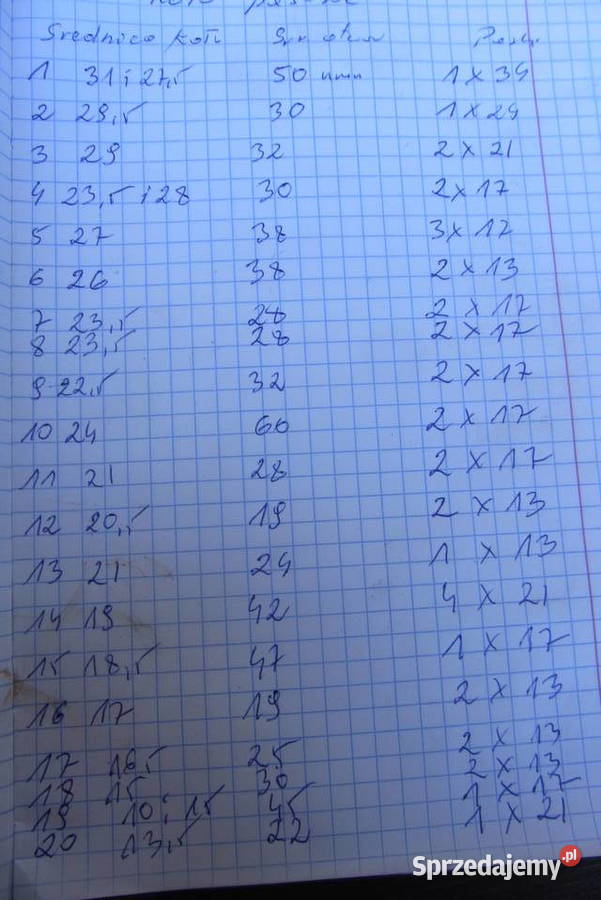 Średnica koła Śr. otw Paski
1 31 i 27,5 50 mm 1 x 34
2 29,5 30 1 x 24
3 29 32 2 x 21
4 23,5 i 28 30 2 x 17
5 27 38 3 x 17
6 26 38 2 x 13
7 23,5 28 2 x 17
8 23,5 28 2 x 17
9 22,5 32 2 x 17
10 24 60 2 x 17
11 21 28 2 x 17
12 20,5 19 2 x 13
13 21 24 1 x 13
14 19 42 4 x 21
15 18,5 47 1 x 17
16 17 19 2 x 13
17 16,5 25 2 x 13
18 15 30 2 x 13
19 10 i 15 45 1 x 17
20 13,5 22 1 x 21
Sprzedajemy.pl